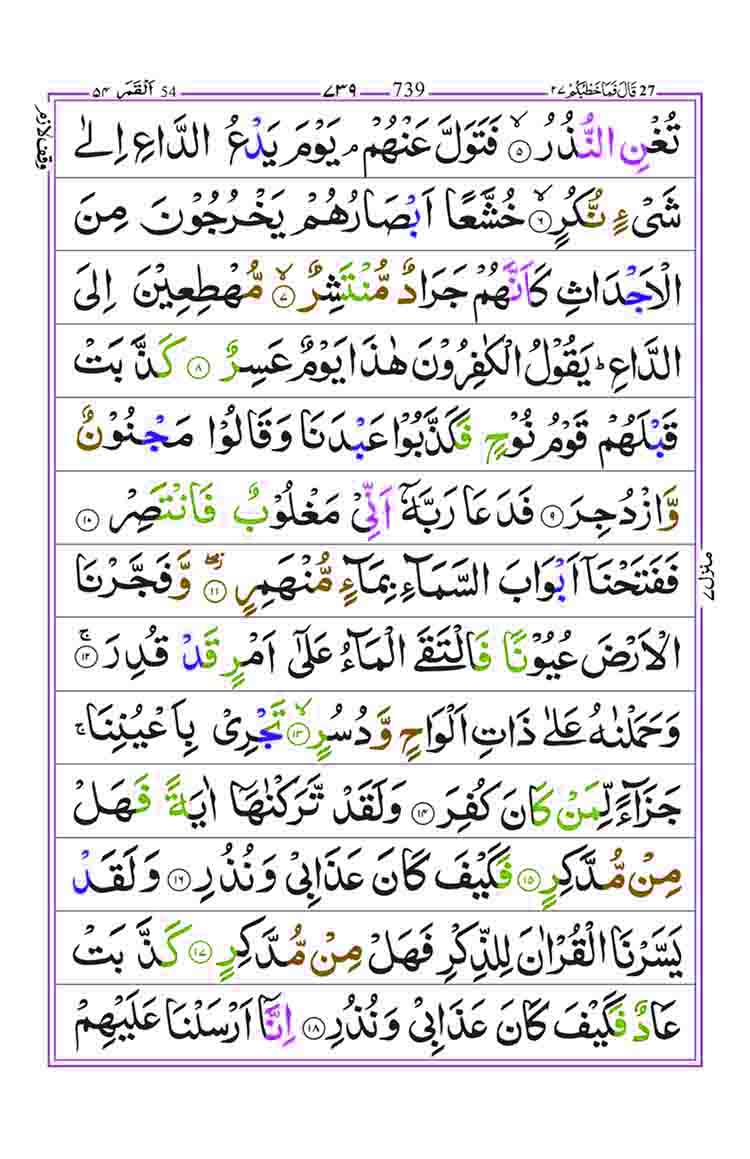 27 قَالَ فَمَا خَطْبُكُمْ ٢٧ 739 ٧٣٩ 54 اَلْقَمَر ٥٤
تُغْنِ النُّذُرُ ۙ‏٥ فَتَوَلَّ عَنْهُمْ ۘ يَوْمَ يَدْعُ الدَّاعِ اِلٰى
شَىْءٍ نُّكُرٍ ۙ‏٦ خُشَّعًا اَبْصَارُهُمْ يَخْرُجُوْنَ مِنَ
الْاَجْدَاثِ كَاَنَّهُمْ جَرَادٌ مُّنْتَشِرٌ ۙ‏٧ مُّهْطِعِيْنَ اِلَى
الدَّاعِ ؕ يَقُوْلُ الْكٰفِرُوْنَ هٰذَا يَوْمٌ عَسِرٌ ٨ كَذَّبَتْ
قَبْلَهُمْ قَوْمُ نُوْحٍ فَكَذَّبُوْا عَبْدَنَا وَقَالُوْا مَجْنُوْنٌ
وَّازْدُجِرَ ٩ فَدَعَا رَبَّهٗۤ اَنِّىْ مَغْلُوْبٌ فَانْتَصِرْ ١٠
فَفَتَحْنَاۤ اَبْوَابَ السَّمَآءِ بِمَآءٍ مُّنْهَمِرٍ ۖ ١١ وَّفَجَّرْنَا
الْاَرْضَ عُيُوْنًا فَالْتَقَى الْمَآءُ عَلٰٓى اَمْرٍ قَدْ قُدِرَ ۚ ١٢
وَحَمَلْنٰهُ عَلٰى ذَاتِ اَلْوَاحٍ وَّدُسُرٍ ۙ ١٣ تَجْرِىْ بِاَعْيُنِنَا ۚ
جَزَآءً لِّمَنْ كَانَ كُفِرَ ١٤ وَلَقَدْ تَّرَكْنٰهَاۤ اٰيَةً فَهَلْ
مِنْ مُّدَّكِرٍ ١٥ فَكَيْفَ كَانَ عَذَابِىْ وَنُذُرِ ١٦ وَلَقَدْ
يَسَّرْنَا الْقُرْاٰنَ لِلذِّكْرِ فَهَلْ مِنْ مُّدَّكِرٍ ١٧ كَذَّبَتْ
عَادٌ فَكَيْفَ كَانَ عَذَابِىْ وَنُذُرِ ١٨ اِنَّاۤ اَرْسَلْنَا عَلَيْهِمْ
وقف لازم
منزل ٧